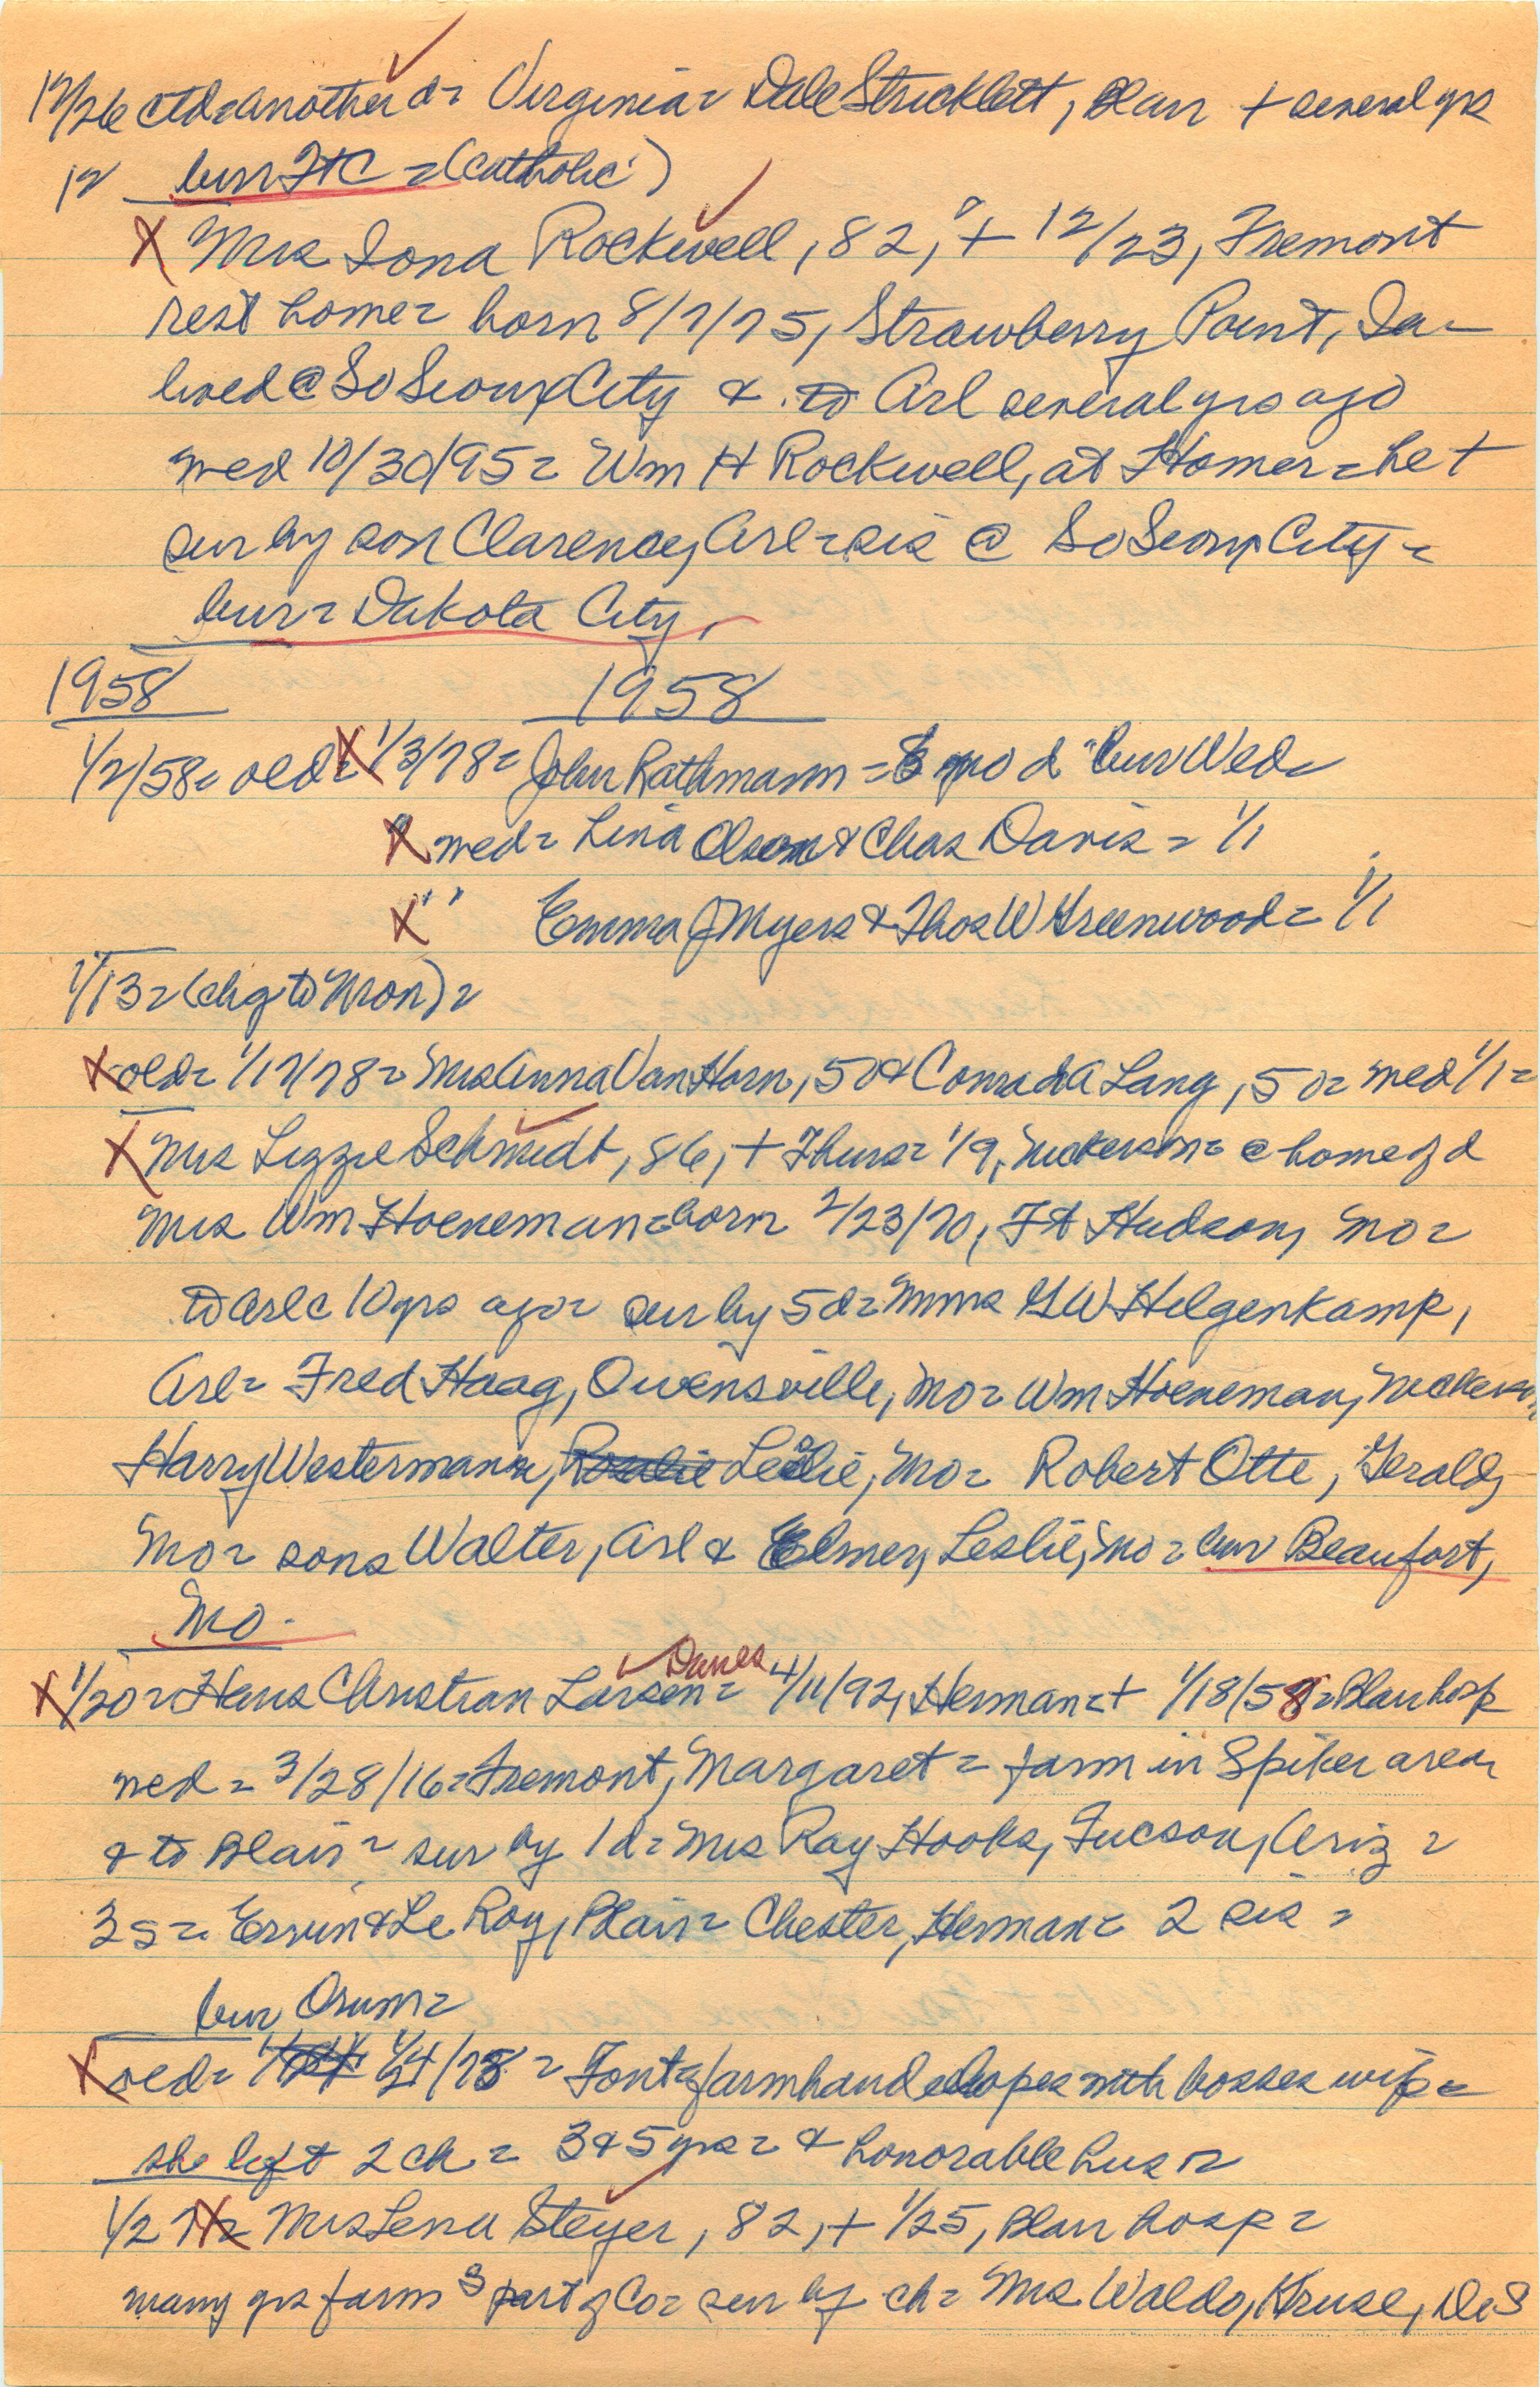 12/26 ctd = another d = Virginia = Dale Stricklett, Blair + several grs
12 bur Ft C = (Catholic)
X Mrs Iona Rockwell, 82, + 12/23, Fremont
rest home = born 8/7/75, Strawberry Point, Ia -
lived @ So Sioux City & to Arl several yrs ago
med 10/30/95 = Wm H Rockwell, at Homer = he +
sur by son Clarence, Arl = sis @ So Sioux City =
bur = Dakota City,
1958 1958
1/2/58 = old = X 1/3/78 = John Rathmann = mo d bur Wed =
X med = Lina Olsen & Chas Davis = 1/1
X " " Emma J Myers & Thos W Greenwood = 1/1
1/13 = (chg to Mon) =
X old = 1/17/78 = Mrs Anna Van Horn, 50 & Conrad A Lang, 50 = med 1/1 =
X Mrs Lizzie Schmidt, 86, + Thurs = 1/9, Nickerson = @ home of d
Mrs Wm Hoeneman = born 2/23/70, Ft Hudson, Mo =
to Arl c 10 yrs ago = sur by 5 d = Mms G W Helgenkamp,
Arl = Fred Haag, Owensville, Mo = Wm Hoeneman, Nickerson,
Harry Westermann, Leslie, Mo = Robert Otte, Gerald,
Mo = sons Walter, Arl & Elmer, Leslie, Mo = bur Beaufort,
Mo.
X 1/20 = Hans Christian Larsen = Danes 4/11/92, Herman = + 1/18/58 = Blair hosp
med = 3/28/16 = Fremont, Margaret = farm in Spiker area,
& to Blair = sur by 1 d = Mrs Ray Hooks, Tucson, Ariz =
3 s = Ervin & Le Roy, Blair = Chester, Herman = 2 sis =
bur Orum =
X old = 1/24/78 = Font = farmhand elopes with bosses wife =
she left 2 ch = 3 & 5 yrs = & honorable hus =
1/27 X = Mrs Lena Steyer, 82, + 1/25, Blair hosp =
many yrs farm S part of Co = sur by ch = Mrs Waldo, Kruse, D S